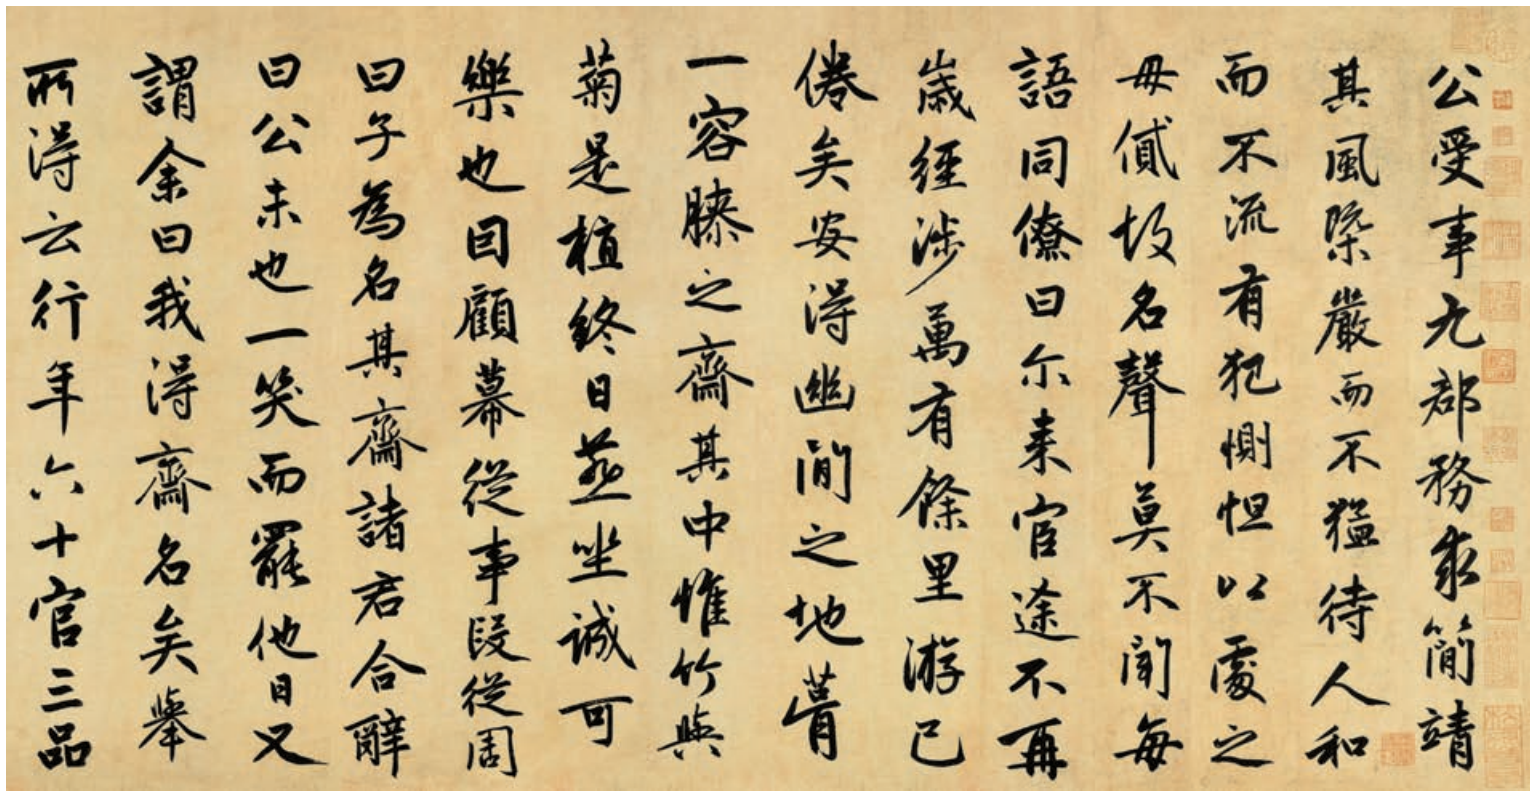 公受事九郡務求簡靖
其風槩嚴而不猛待人和
而不流有犯惻怛以處之
毋貳故名聲莫不聞每
語同僚曰尒来官途不再
歲經涉萬有餘里游已
倦矣安得幽閒之地葺
一容膝之齋其中惟竹與
菊是植終日燕坐誠可
樂也因顧幕從事段從周
曰子為名其齋諸君合辭
曰公未也一笑而罷他日又
謂余曰我得齋名矣舉
所得云行年六十官三品